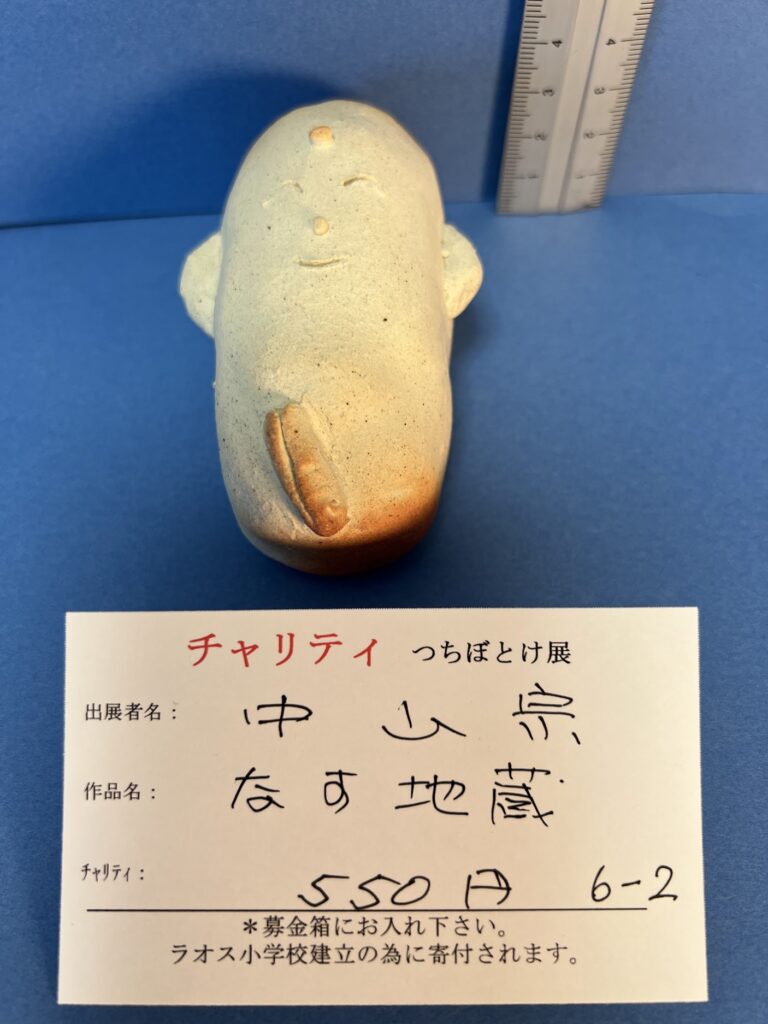 4 4
3 3
2 2
1 1
チャリティ つちぼとけ展
出展者名： 中山宗
作品名： なす地蔵
チャリティ： 550円 6-2
＊募金箱にお入れ下さい。
ラオス小学校建立の為に寄付されます。